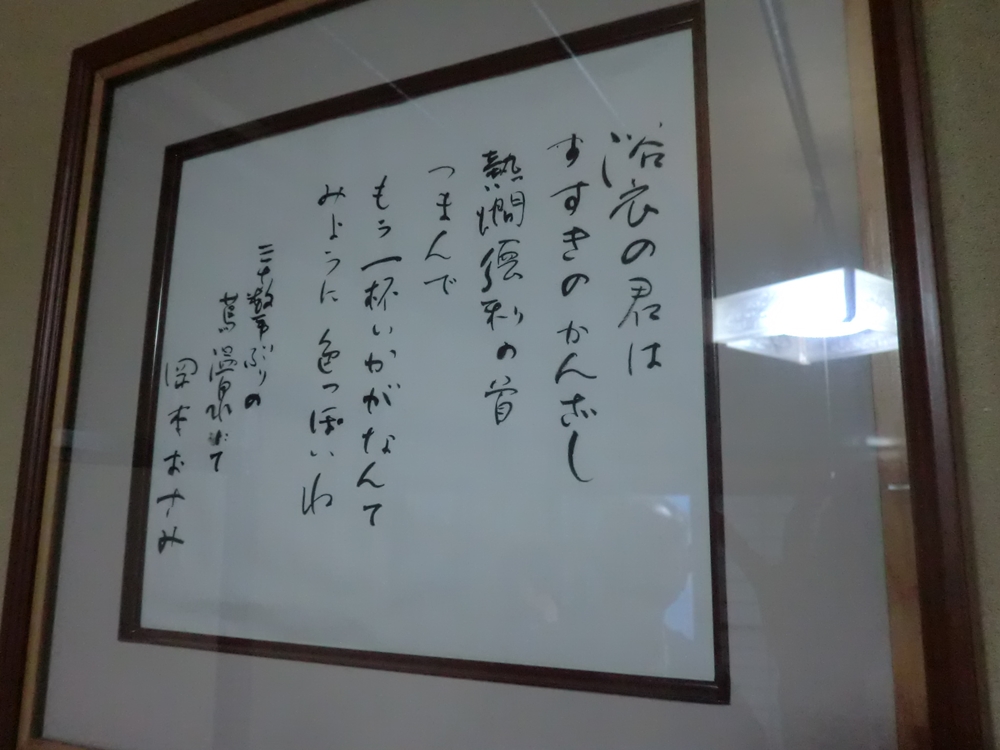 浴衣の君は
すすきのかんざし
熱燗徳利の首
つまんで
もう一杯いかがなんて
みょうに色っぽいね
三十数年ぶりの
蔦温泉にて
岡本おさみ